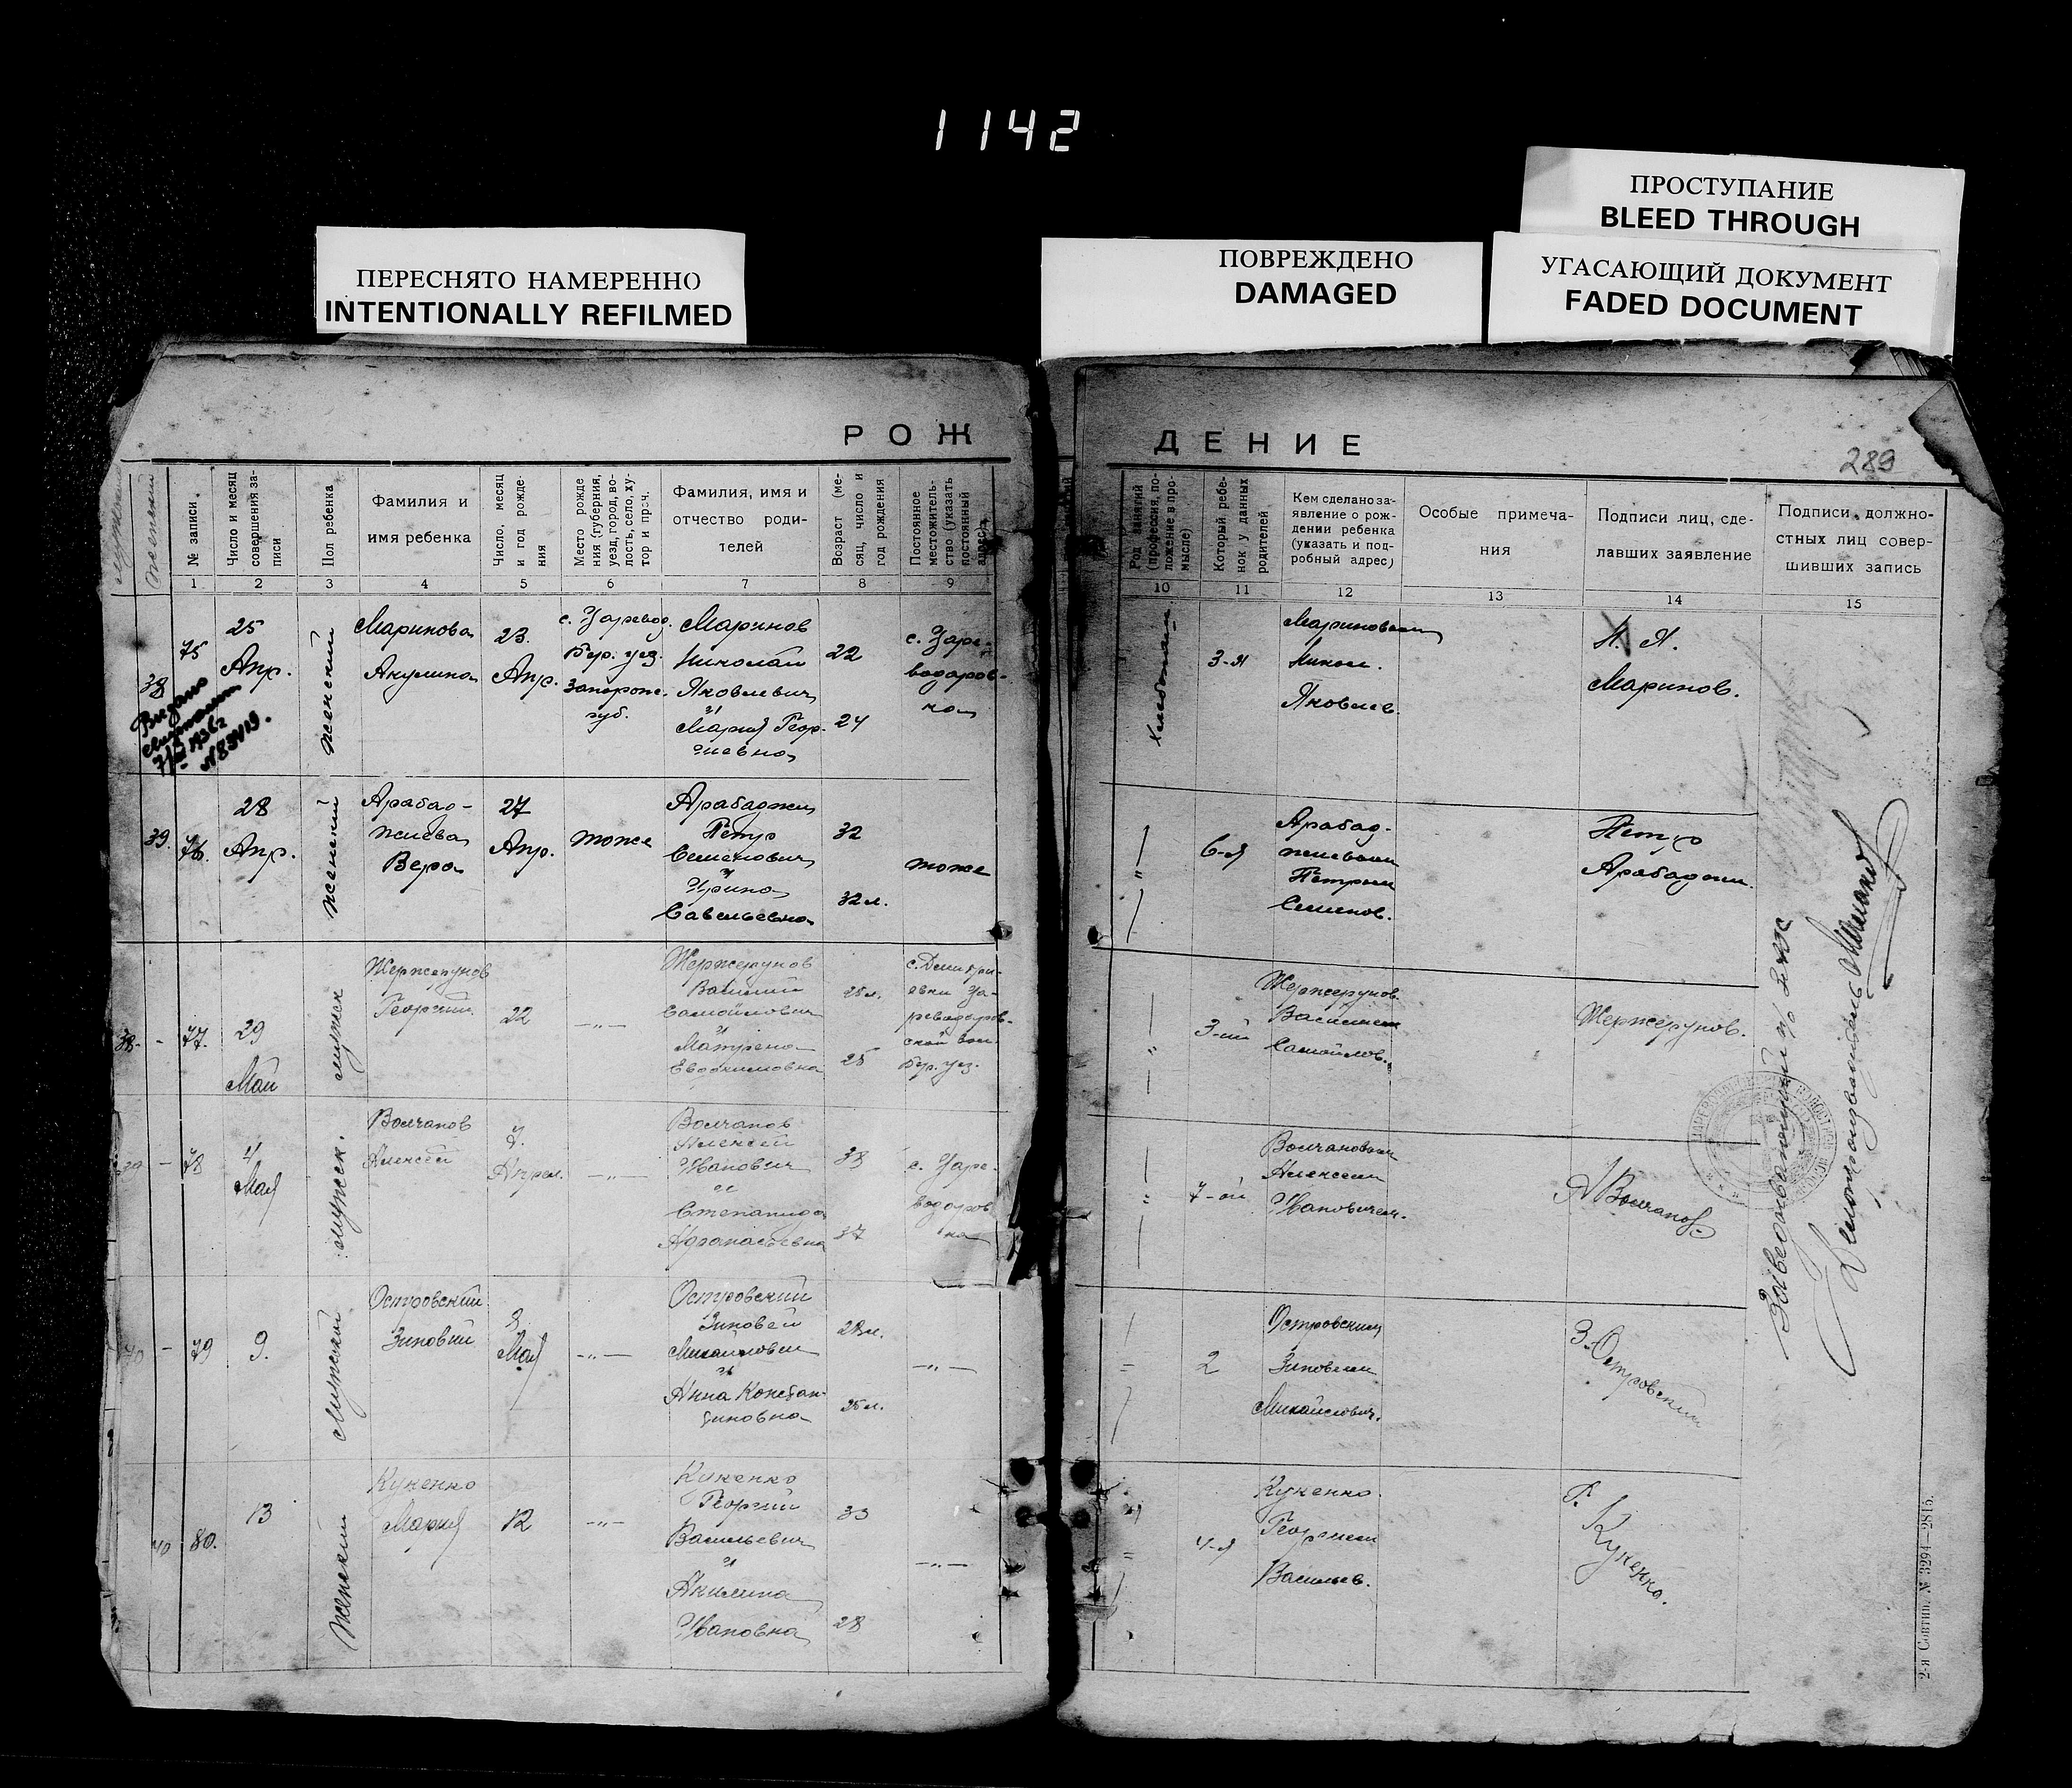 1142
ПРОСТУПАНИЕ
BLEED THROUGH
ПЕРЕСНЯТО НАМЕРЕННО
INTENTIONALLY REFILMED
ПОВРЕЖДЕНО
DAMAGED
УГАСАЮЩИЙ ДОКУМЕНТ
FADED DOCUMENT
РОЖ
ДЕНИЕ
289
№ записи
Число и месяц
совершения за-
писи
Пол ребенка
Фамилия и
имя ребенка
Число, месяц
и год рожде-
ния
Место рожде
ния (губерния,
уезд, город, во-
лость, село, ху-
тор и проч.
Фамилия, имя и
отчество роди-
телей
Возраст (ме-
сяц, число и
год рождения
Постоянное
местожитель-
ство (указать
постоянный
адрес)
Род занятий
(профессия, по-
ложение в про-
мысле)
Который ребе-
нок у данных
родителей
Кем сделано за-
явление о рож-
дении ребенка
(указать и под-
робный адрес)
Особые примеча-
ния
Подписи лиц, сде-
лавших заявление
Подписи должно-
стных лиц совер-
шивших запись
1 2 3 4 5 6 7 8 9
10 11 12 13 14 15
38
75
25
Апр.
женский
Маринова
Акулина
23.
Апр.
с. Царевод.
Бер. уез.
Запорож.
губ.
Маринов
Николай
Яковлевич
и
Мария Геор-
гиевна
22
24
с. Царе-
водаров-
ка
3-я
Мариновым
Никол.
Яковлев.
Н. Я.
Маринов.
39.
76.
28
Апр.
женский
Арабад-
жиева
Вера
27
Апр.
тоже
Арабаджи
Петр
Семенович
и
Ирина
Савельевна
32
32 л.
тоже
6-я
Арабад-
жиевым
Петром
Семенов.
Петр
Арабаджи.
38.
-
77.
29
мужск
Жержерунов
Георгий
22
-"-
Жержерунов
Василий
Самойлович
и
Матрена
Евдокимовна
25 л.
25
с. Дмитри-
евки Ца-
реводаров-
ской вол.
Бер. уез.
3-ий
Жержерунов.
Василием
Самойлов.
Жержерунов.
Май
39
-
78
4
Мая
мужск.
Волчанов
Алексей
Апрел.
-"-
Волчанов
Алексей
Иванович
и
Степанида
Афанасьевна
38
37
с. Царе-
водаров
ка
7-ой
Волчановым
Алексеем
Ивановичем.
А Волчанов
40
-
79
9.
Мужской
Островский
Зиновий
8
Мая
-"-
Островский
Зиновей
Михайлович
и
Анна Констан-
тиновна
28 л.
25 л.
-"-
2
Островским
Зиновием
Михайлович.
З. Островский
40
80.
13
Женский
Кукенко
Мария
12
-"-
Кукенко
Георгий
Васильевич
и
Акилина
Ивановна
33
28
-"-
4-я
Кукенко
Георгием
Васильев.
Г.
Кукенко.
2-я Совтип. № 3294—2815.